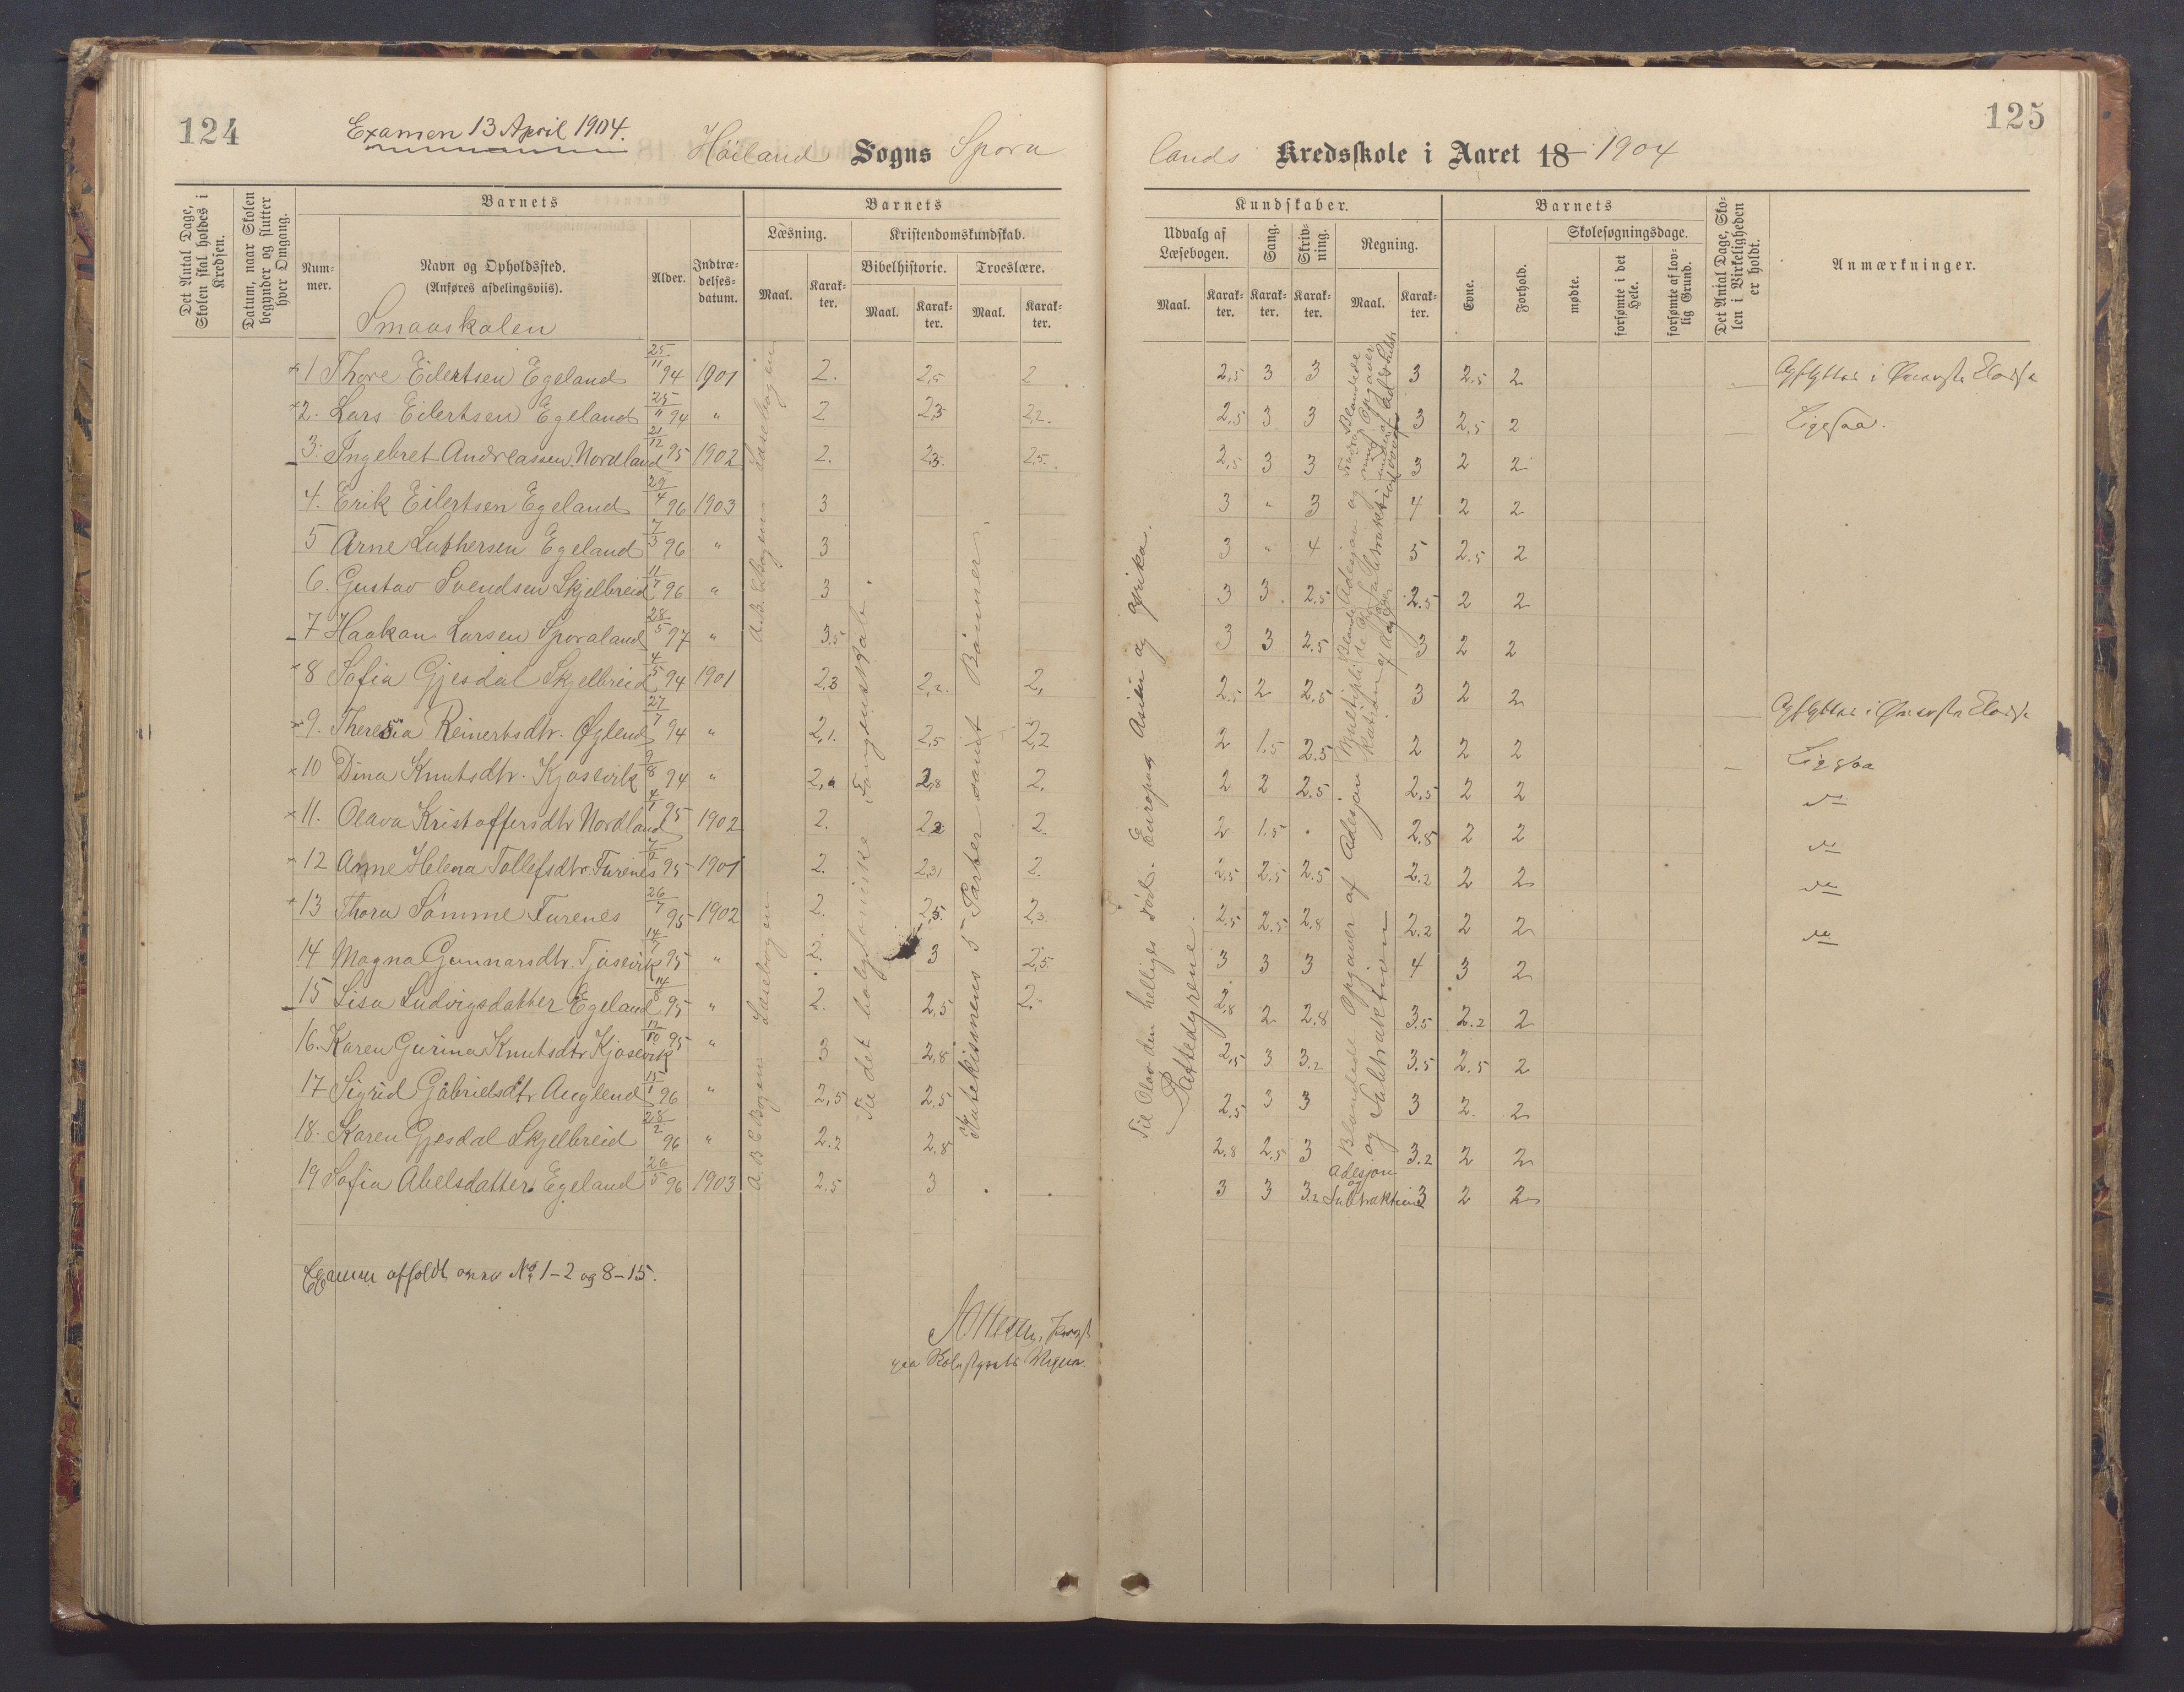 124
Examen 13 April 1904.
Höiland Sogns Spora
lands Kredsskole i Aaret 18 1904
125
Det Antal Dage, Skolen skal holdes i Kredsen.
Datum, naar Skolen begynder og slutter hver Omgang.
Barnets
Num-mer.
Navn og Opholdssted.
(Anføres afdelingsviis).
Smaaskolen
Alder.
Indtræ-delses-datum.
Barnets
Læsning.
Maal.
Karak-ter.
Kristendomskundskab.
Bibelhistorie.
Maal.
Karak-ter.
Troeslære.
Maal.
Karak-ter.
Kundskaber.
Udvalg af Læsebogen.
Maal.
Karak-ter.
Sang.
Karak-ter.
Skriv-ning.
Karak-ter.
Regning.
Maal.
Karak-ter.
Barnets
Evne.
Forhold.
Skolesøgningsdage.
mødte.
forsømte i det Hele.
forsømte af lov-lig Grund.
Det Antal Dage, Sko-len i Virkeligheden er holdt.
Anmærkninger.
1 Thore Eilertsen Egeland 25/11 94 1901 2. 2,5 2 2,5 3 3 3 2.5 2
2. Lars Eilertsen Egeland 25/11 94 " 2 2,3 2,2. 2,5 3 3 3 2.5 2 Ligesaa.
3. Ingebret Andreassen Nordland 21/12 95 1902 2. 2,3. 2,5. 2,5 3 3 3 2 2
4. Erik Eilertsen Egeland 29/4 96 1903 3 3 " 3 4 2 2
5 Arne Luthersen Egeland 7/3 96 " 3 3 " 4 5 2.5 2
6. Gustav Svendsen Skjelbreid 11/7 96 " 3 3 3 2.5 2.5 2 2
7 Haakon Larsen Sporaland 28/5 97 " 3.5 3 3 2.5 3 2 2
8 Sofia Gjesdal Skjelbreid 4/5 94 1901 2,3 2,2. 2, 2.5 2 2.5 3 2 2
9. Theresia Reinertsdtr. Øglend 27/7 94 " 2,1. 2,5 2,2 2 1.5 2.5 2 2 2 Ligesaa
10 Dina Knutsdtr. Kjosevik 9/8 94 " 2,8 2. 2 2 2.5 2,5 2 2 do
11. Olava Kristoffersdtr Nordland 4/1 95 1902 2. 2. 2 1.5 2.8 2 2 do
12 Anne Helena Tollefsdtr Furenes 95 1901 2. 2,3 2. 2,5 2.5 2.5 2.2 2 2 do
13 Thora Sömme Furenes 26/7 95 1902 2. 2,5. 2,3. 2.5 2.5 2.8 2.2 2 2 do
14 Magna Gunnarsdtr. Tjosevik 14/7 95 " 2. 3 2,5. 3 3 3 4 3 2
15 Lisa Ludvigsdatter Egeland 95 " 2. 2,5 2. 2.8 2 2.8 3.5 2.2 2
16. Karen Gurina Knutsdtr Kjosevik 12/10 95 " 3 2,8 2,5 3 3.2 3.5 2.5 2
17 Sigrid Gabrielsdtr Auglend 15/1 96 " 2,5 2.5 2.5 3 3 3 2. 2
18. Karen Gjesdal Skjelbreid 28/2 96 " 2.2 2.8 2.8 2.5 3 3.2 2 2
19 Sofia Abelsdatter Egeland 26/5 96 1903 2.5 3 3 3 3.2 3 2 2
A.B.C. Bogen Læsebogen
A.B.C Bogen Læsebogen
Til det babyloniske Fangenskab.
Katekismens 5 Parter samt Bönner
Til Olav den helliges död. Europa Asien og afrika.
Pattedyrene.
Blandede Opgaver af Adesjon og Subtraktion
Adesjon og Subtraktion
No 1-2 og 8-15.